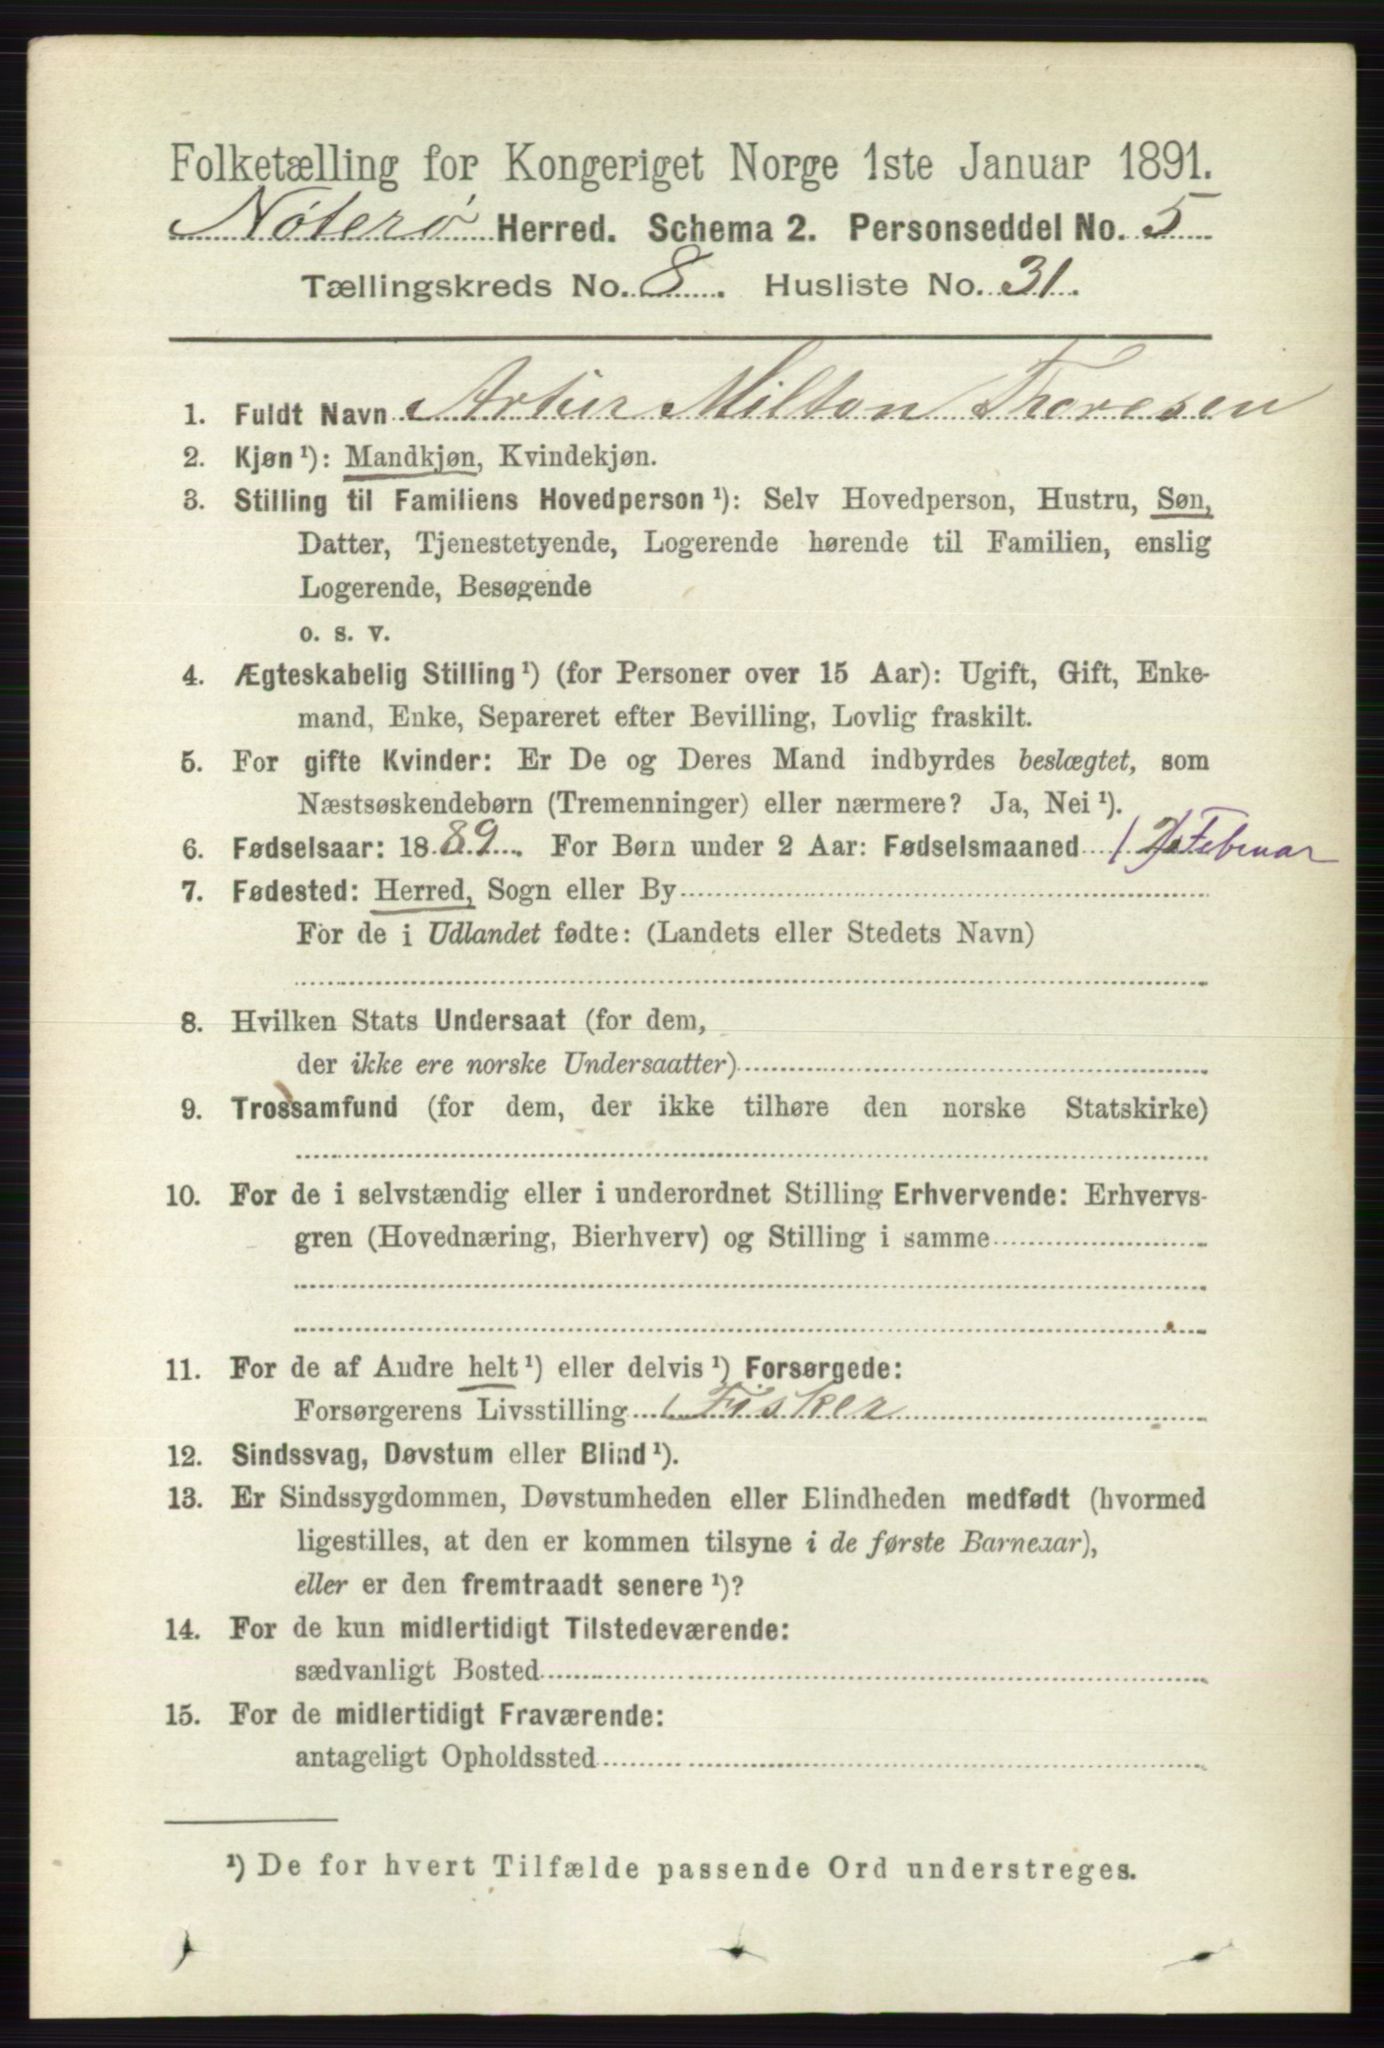 Folketælling for Kongeriget Norge 1ste Januar 1891.
Nøterø Herred. Schema 2. Personseddel No. 5
Tællingskreds No. 8. Husliste No. 31.
1. Fuldt Navn Artur Milton Thoresen
2. Kjøn¹): Mandkjøn, Kvindekjøn.
3. Stilling til Familiens Hovedperson¹): Selv Hovedperson, Hustru, Søn,
Datter, Tjenestetyende, Logerende hørende til Familien, enslig
Logerende, Besøgende
o. s. v.
4. Ægteskabelig Stilling¹) (for Personer over 15 Aar): Ugift, Gift, Enke-
mand, Enke, Separeret efter Bevilling, Lovlig fraskilt.
5. For gifte Kvinder: Er De og Deres Mand indbyrdes beslægtet, som
Næstsøskendebørn (Tremenninger) eller nærmere? Ja, Nei¹).
6. Fødselsaar: 1889. For Børn under 2 Aar: Fødselsmaaned Februar
7. Fødested: Herred, Sogn eller By
For de i Udlandet fødte: (Landets eller Stedets Navn)
8. Hvilken Stats Undersaat (for dem,
der ikke ere norske Undersaatter)
9. Trossamfund (for dem, der ikke tilhøre den norske Statskirke)
10. For de i selvstændig eller i underordnet Stilling Erhvervende: Erhvervs-
gren (Hovednæring, Bierhverv) og Stilling i samme
11. For de af Andre helt¹) eller delvis¹) Forsørgede:
Forsørgerens Livsstilling Fisker
12. Sindssvag, Døvstum eller Blind¹).
13. Er Sindssygdommen, Døvstumheden eller Blindheden medfødt (hvormed
ligestilles, at den er kommen tilsyne i de første Barneaar),
eller er den fremtraadt senere¹)?
14. For de kun midlertidigt Tilstedeværende:
sædvanligt Bosted
15. For de midlertidigt Fraværende:
antageligt Opholdssted
¹) De for hvert Tilfælde passende Ord understreges.